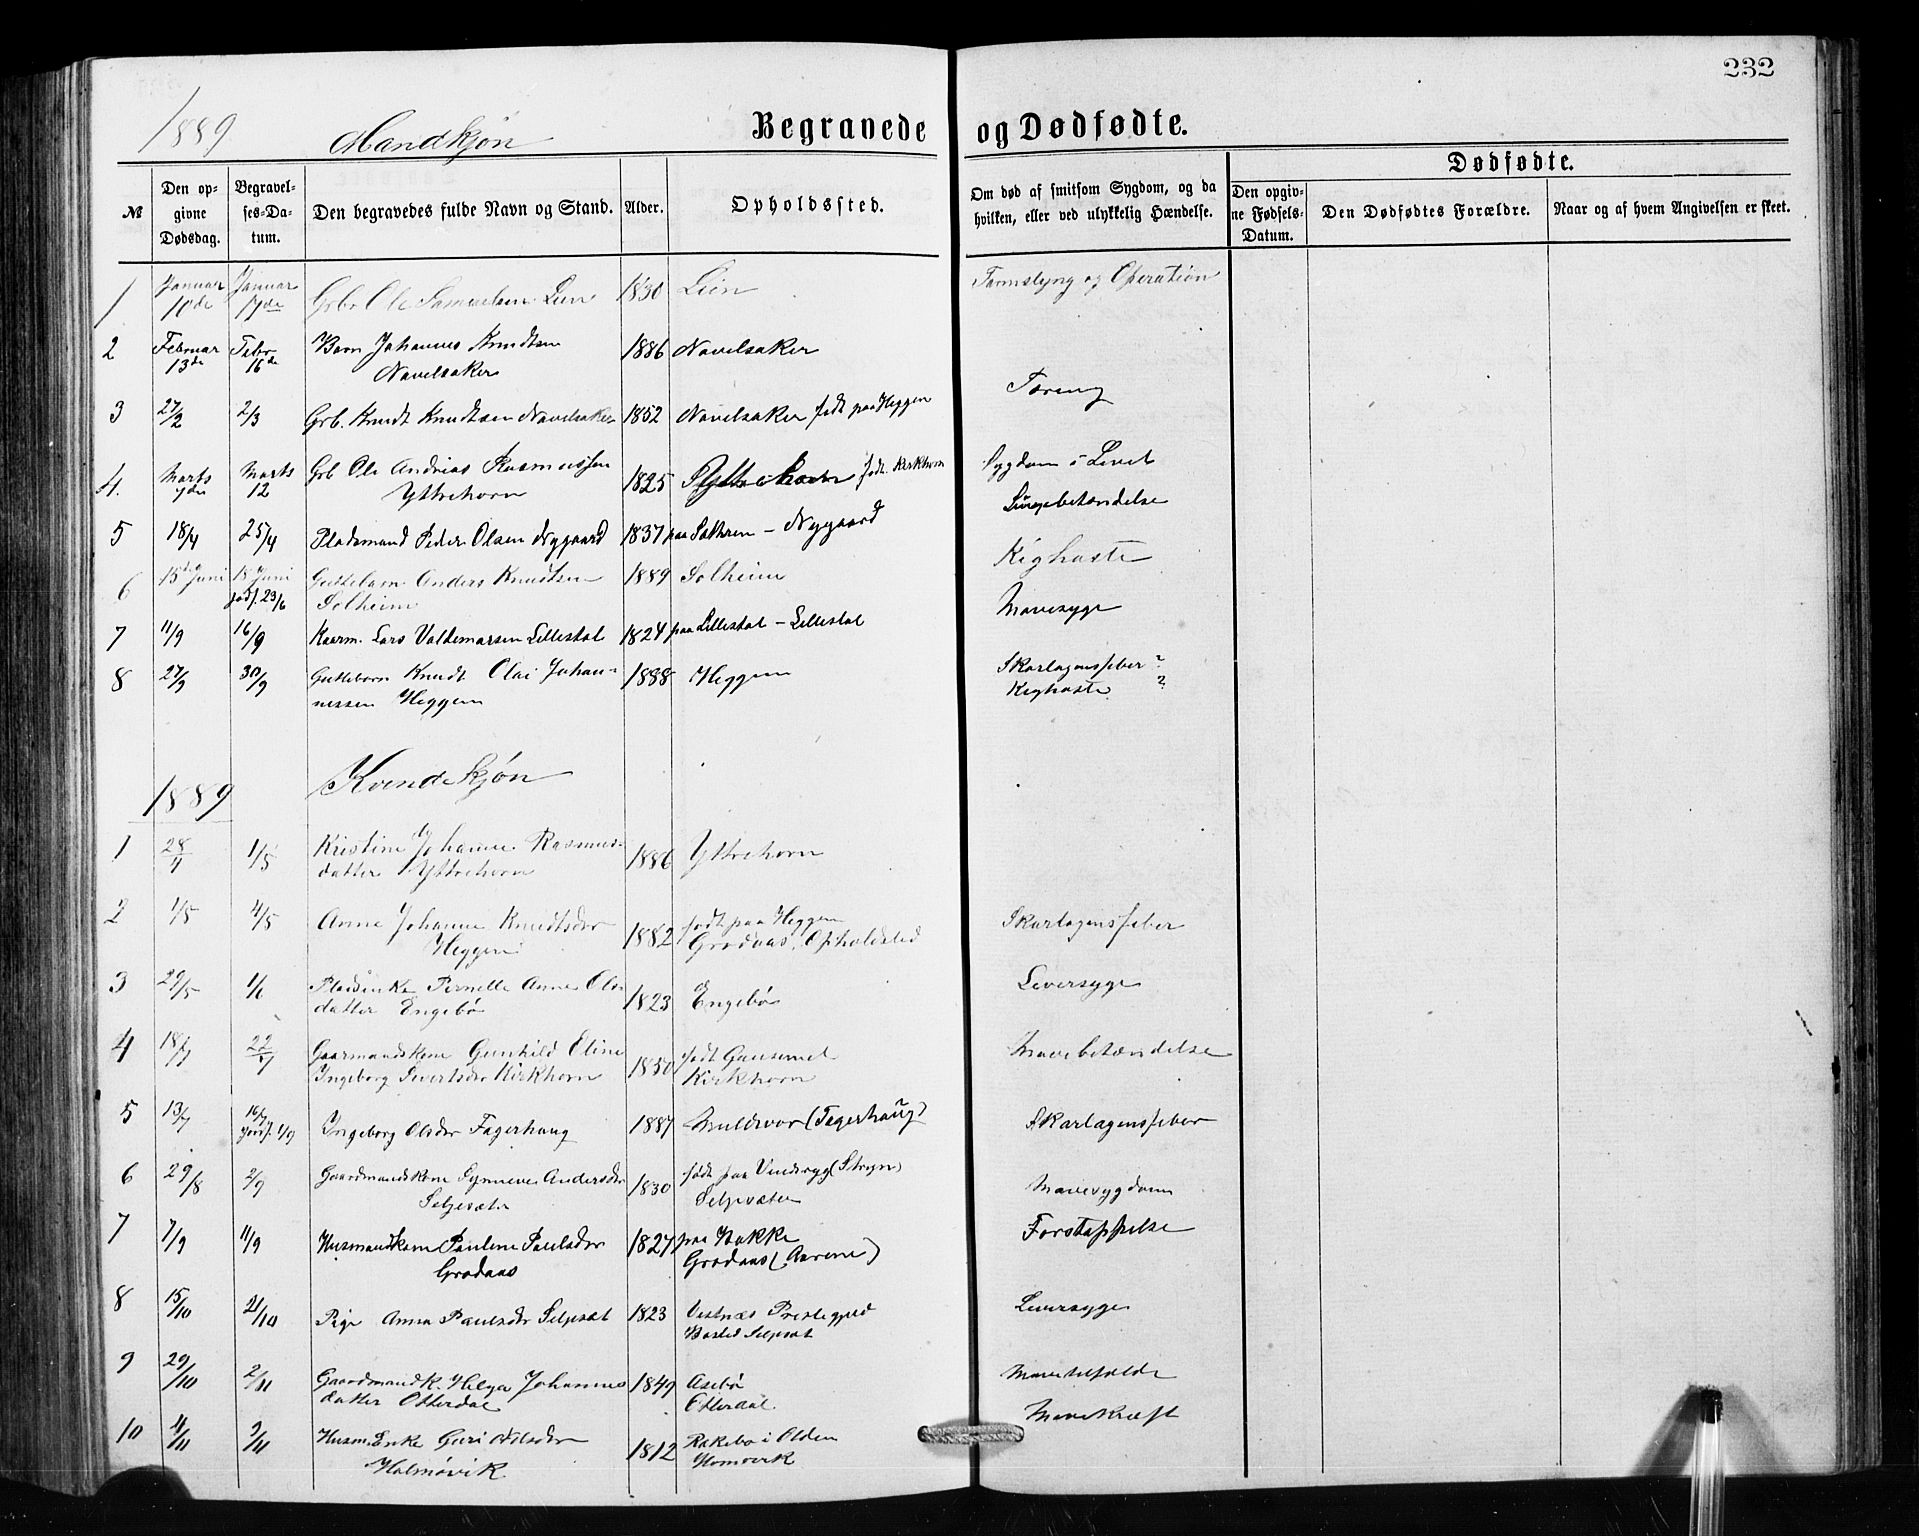 232
1889 Mandkjøn Begravede og Dødfødte.
№ Den opgivne Dødsdag. Begravelses-Datum. Den begravedes fulde Navn og Stand. Alder. Opholdssted. Om død af smitsom Sygdom, og da hvilken, eller ved ulykkelig Hændelse. Dødfødte. Den opgivne Fødsels-Datum. Den Dødfødtes Forældre. Naar og af hvem Angivelsen er skeet.
1 Januar 10de Januar 17de Grbr Ole Samuelsen Lien 1830 Lien Tarmslyng og Operation
2 Februar 13de Febr 16de Barn Johannes Knudtsen
Navelsaker 1886 Navelsaker
3 27/2 2/3 Grb. Knudt Knudtsen Navelsaker 1852 Navelsaker født paa Heggen Tæring
4. Marts 7de Marts 12 Grb Ole Andrias Rasmussen
Yttrehorn 1825 Yttrehorn født Kirkhorn Sygdom i Livet
5 18/4 25/4 Pladsmand Peder Olsen Nygaard 1837 paa Sætren - Nygaard Lungebetændelse
6 15de Juni 18 Juni jordf. 23/6 Guttebarn Anders Knudtsen
Solheim 1889 Solheim Kighoste
7 11/9 16/9 Kaarm. Lars Valdemarsen Lillestøl 1824 paa Lillestøl - Lillestøl Mavesyge
8 27/9 30/9 Guttebarn Knudt Olai Johan-
nessen Heggen 1888 Heggen Skarlagensfeber ?
Kighoste ?
1889 Kvindekjøn
1 28/4 1/5 Kristine Johanne Rasmus-
datter Yttrehorn 1886 Yttrehorn
2 1/5 4/5 Anne Johanne Knudtsdtr
Heggen 1882 født paa Heggen
Grodaas, Opholdsted Skarlagensfeber
3 29/5 1/6 Pladsenke Pernille Anne Ols-
datter Engebø 1823 Engebø Leversyge
4 18/7 22/7 Gaarmandskone Gunhild Eline
Ingeborg Sivertsdtr Kirkhorn 1850 født Gausemel
Kirkhorn Mavebetændelse
5 13/7 16/7 jordf. 1/9 Ingeborg Olsdtr Fagerhaug 1887 Muldsvor (Fagerhaug) Skarlagensfeber
6 29/8 2/9 Gaardmandskone Synneve Andersdtr
Seljesæter 1830 født paa Vindsryg (Stryn)
Seljesæter Mavesygdom
7 7/9 11/9 Husmandskone Pauline Paulsdtr
Grodaas 1827 paa Bakke
Grodaas (Aarene) Forstoppelse
8 15/10 21/10 Pige Anna Paulsdtr Seljeset 1823 Vestnæs Prestegjeld
Bosted Seljeset Leversyge
9 29/10 2/11 Gaardmandk. Helga Johannes
datter Otterdal 1849 Asebø
Otterdal Mavetilfælde
10 4/11 9/11 Husm. Enke Guri Nilsdtr
Holmøvik 1812 Rakebø i Olden
Homvik Mavekræft